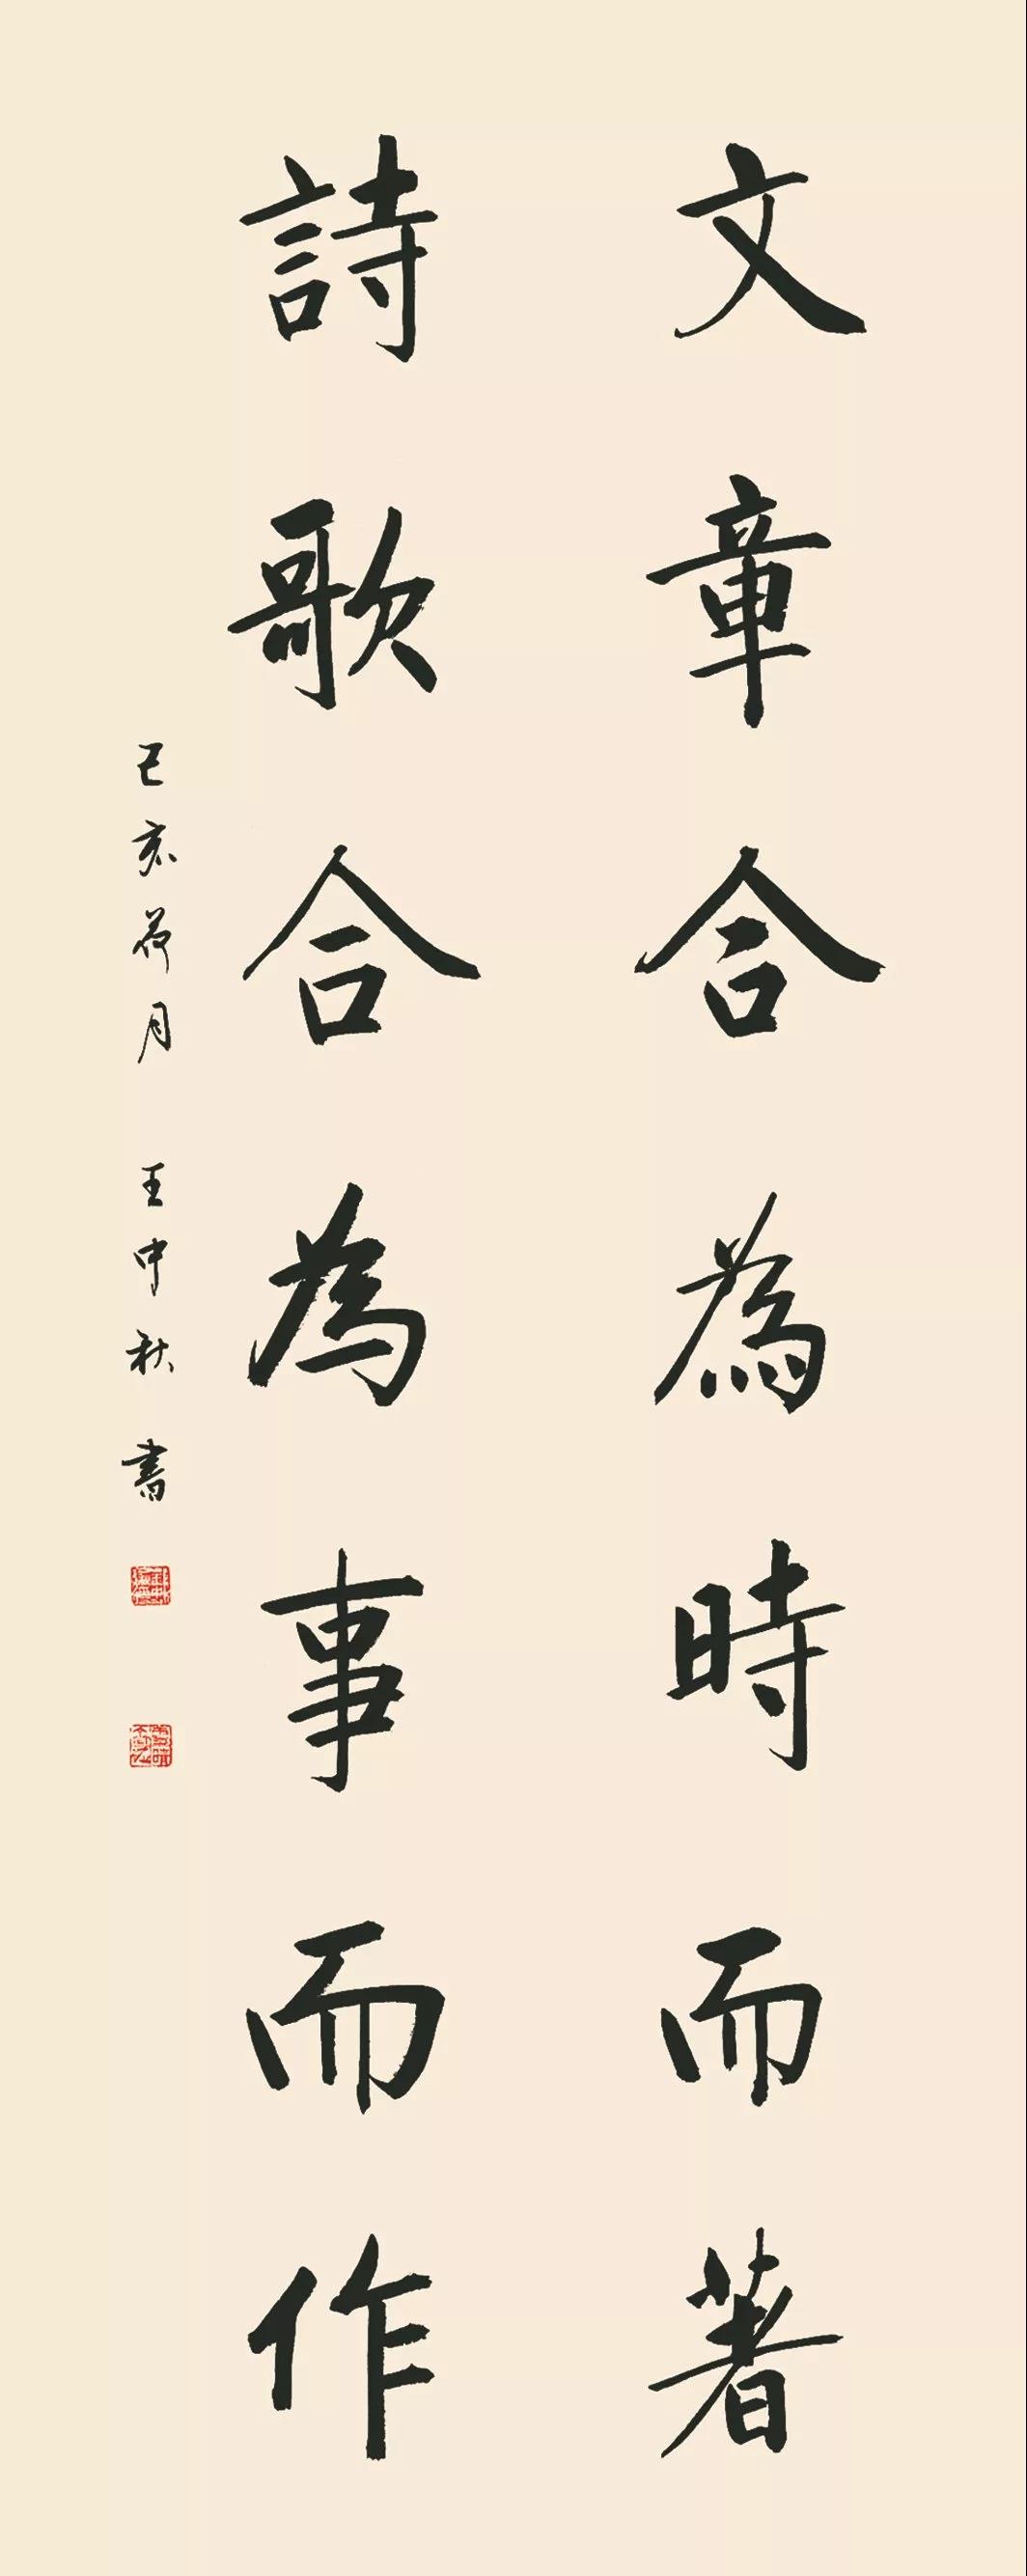 文章合為時而著
詩歌合為事而作
己亥荷月 王中秋書